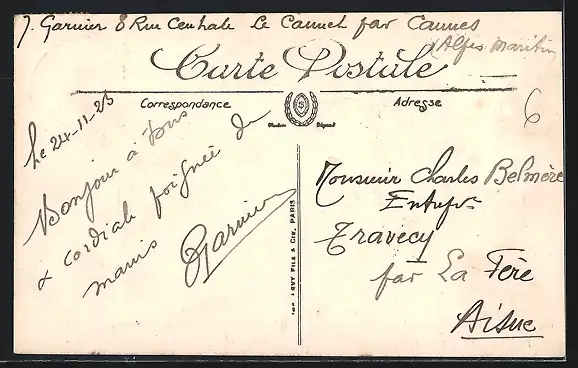 J. Garnier 8 Rue Centrale Le Cannet par Cannes
(Alpes Maritim
Carte Postale
Correspondance
Adresse
6
Le 24-11-25
Bonjour à Tous
& cordiale poignée de
mains
Garnier
Monsieur Charles Belmère
Entrepr
Travecy
par La Fère
Aisne
LEVY FILS & Cie, PARIS